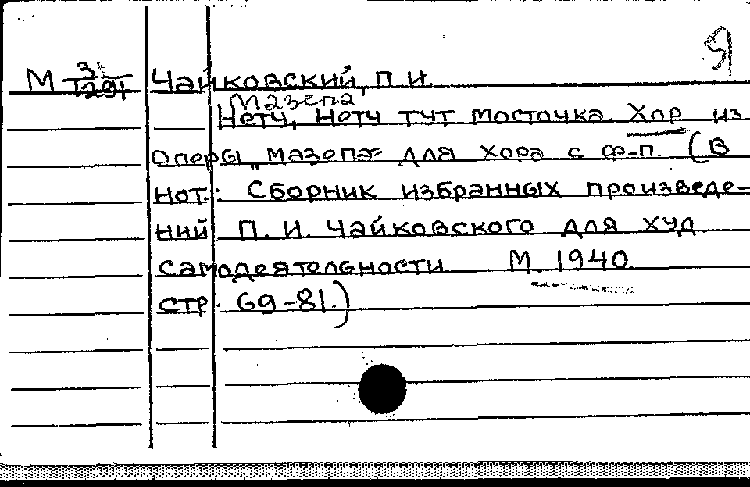 Я
М 3/1291 Чайковский, П. И.
Мазепа
Нету, нету тут мосточка. Хор из
оперы „Мазепа" для хора с ф-п. (В
нот.: Сборник избранных произведе-
ний П. И. Чайковского для худ.
самодеятельности М. 1940.
стр. 69-81.)